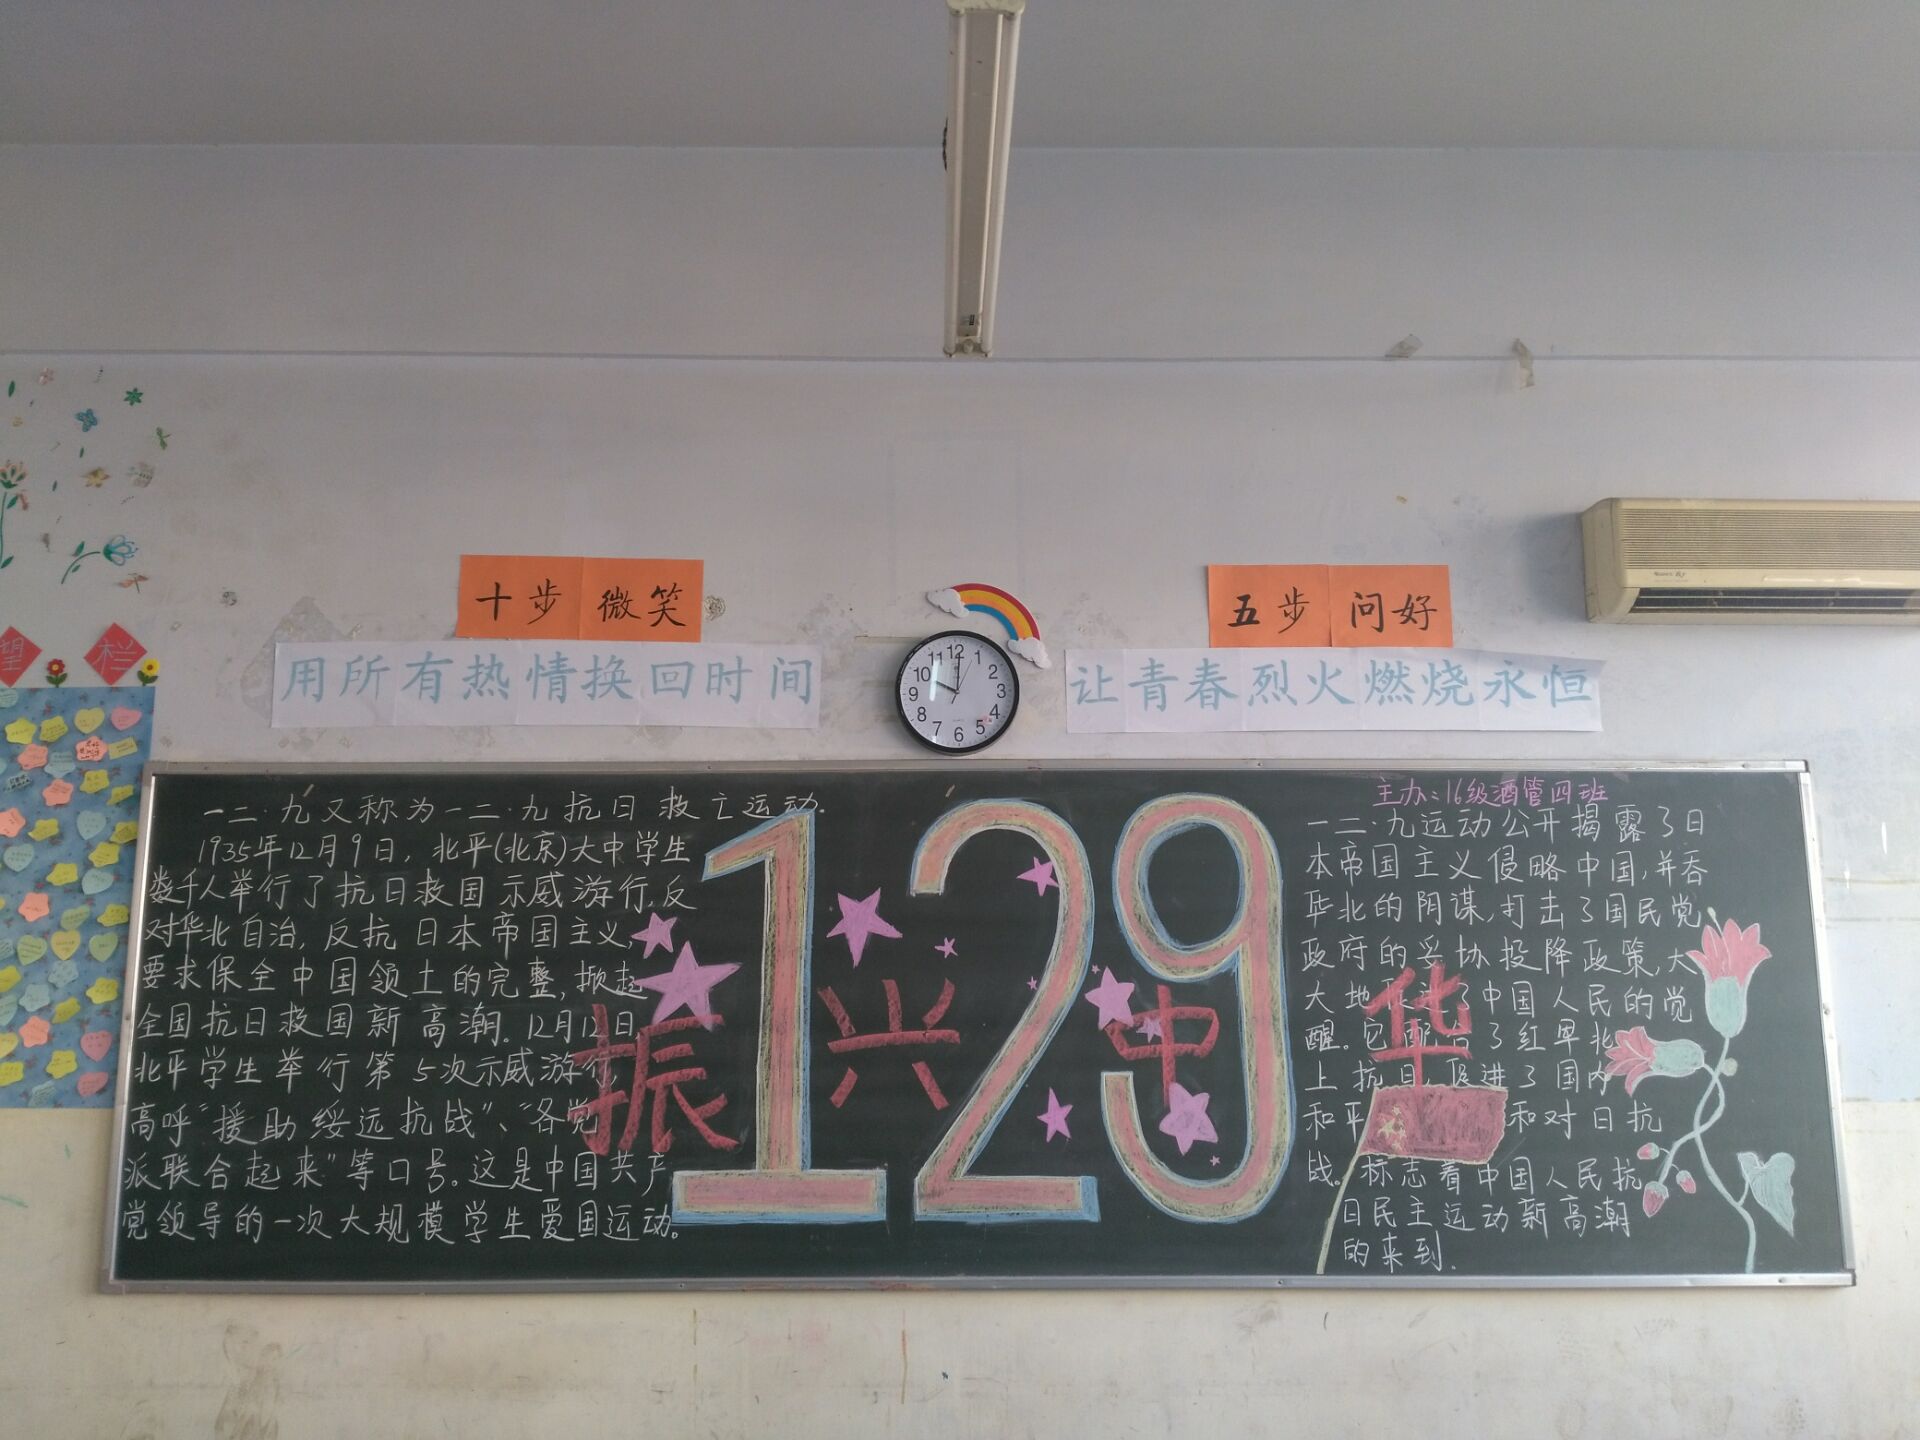 十步微笑
五步问好
用所有热情换回时间
让青春烈火燃烧永恒
望栏
11 12 1
10 2
9 3
8 4
7 6 5
一二·九又称为一二·九抗日救亡运动.
1935年12月9日，北平(北京)大中学生
数千人举行了抗日救国示威游行,反
对华北自治,反抗日本帝国主义,
要求保全中国领土的完整,掀起
全国抗日救国新高潮.12月12日
北平学生举行第5次示威游行,
高呼“援助绥远抗战”、“各党
派联合起来”等口号.这是中国共产
党领导的一次大规模学生爱国运动。
129
振兴中华
主办:16级酒管四班
一二·九运动公开揭露了日
本帝国主义侵略中国,并吞
华北的阴谋,打击了国民党
政府的妥协投降政策,大
大地促进了中国人民的觉
醒.它配合了红军北
上抗日,促进了国内
和平和对日抗
战.标志着中国人民抗
日民主运动新高潮
的来到.